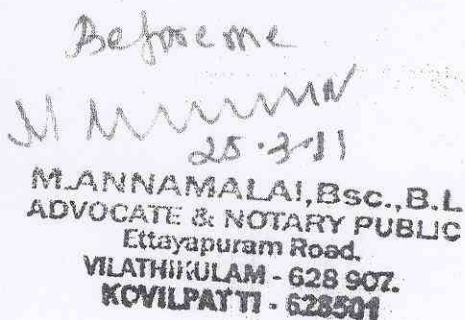 Before me
25.3.11
M.ANNAMALAI, Bsc., B.L
ADVOCATE & NOTARY PUBLIC
Ettayapuram Road.
VILATHIKULAM - 628 907.
KOVILPATTI - 628501